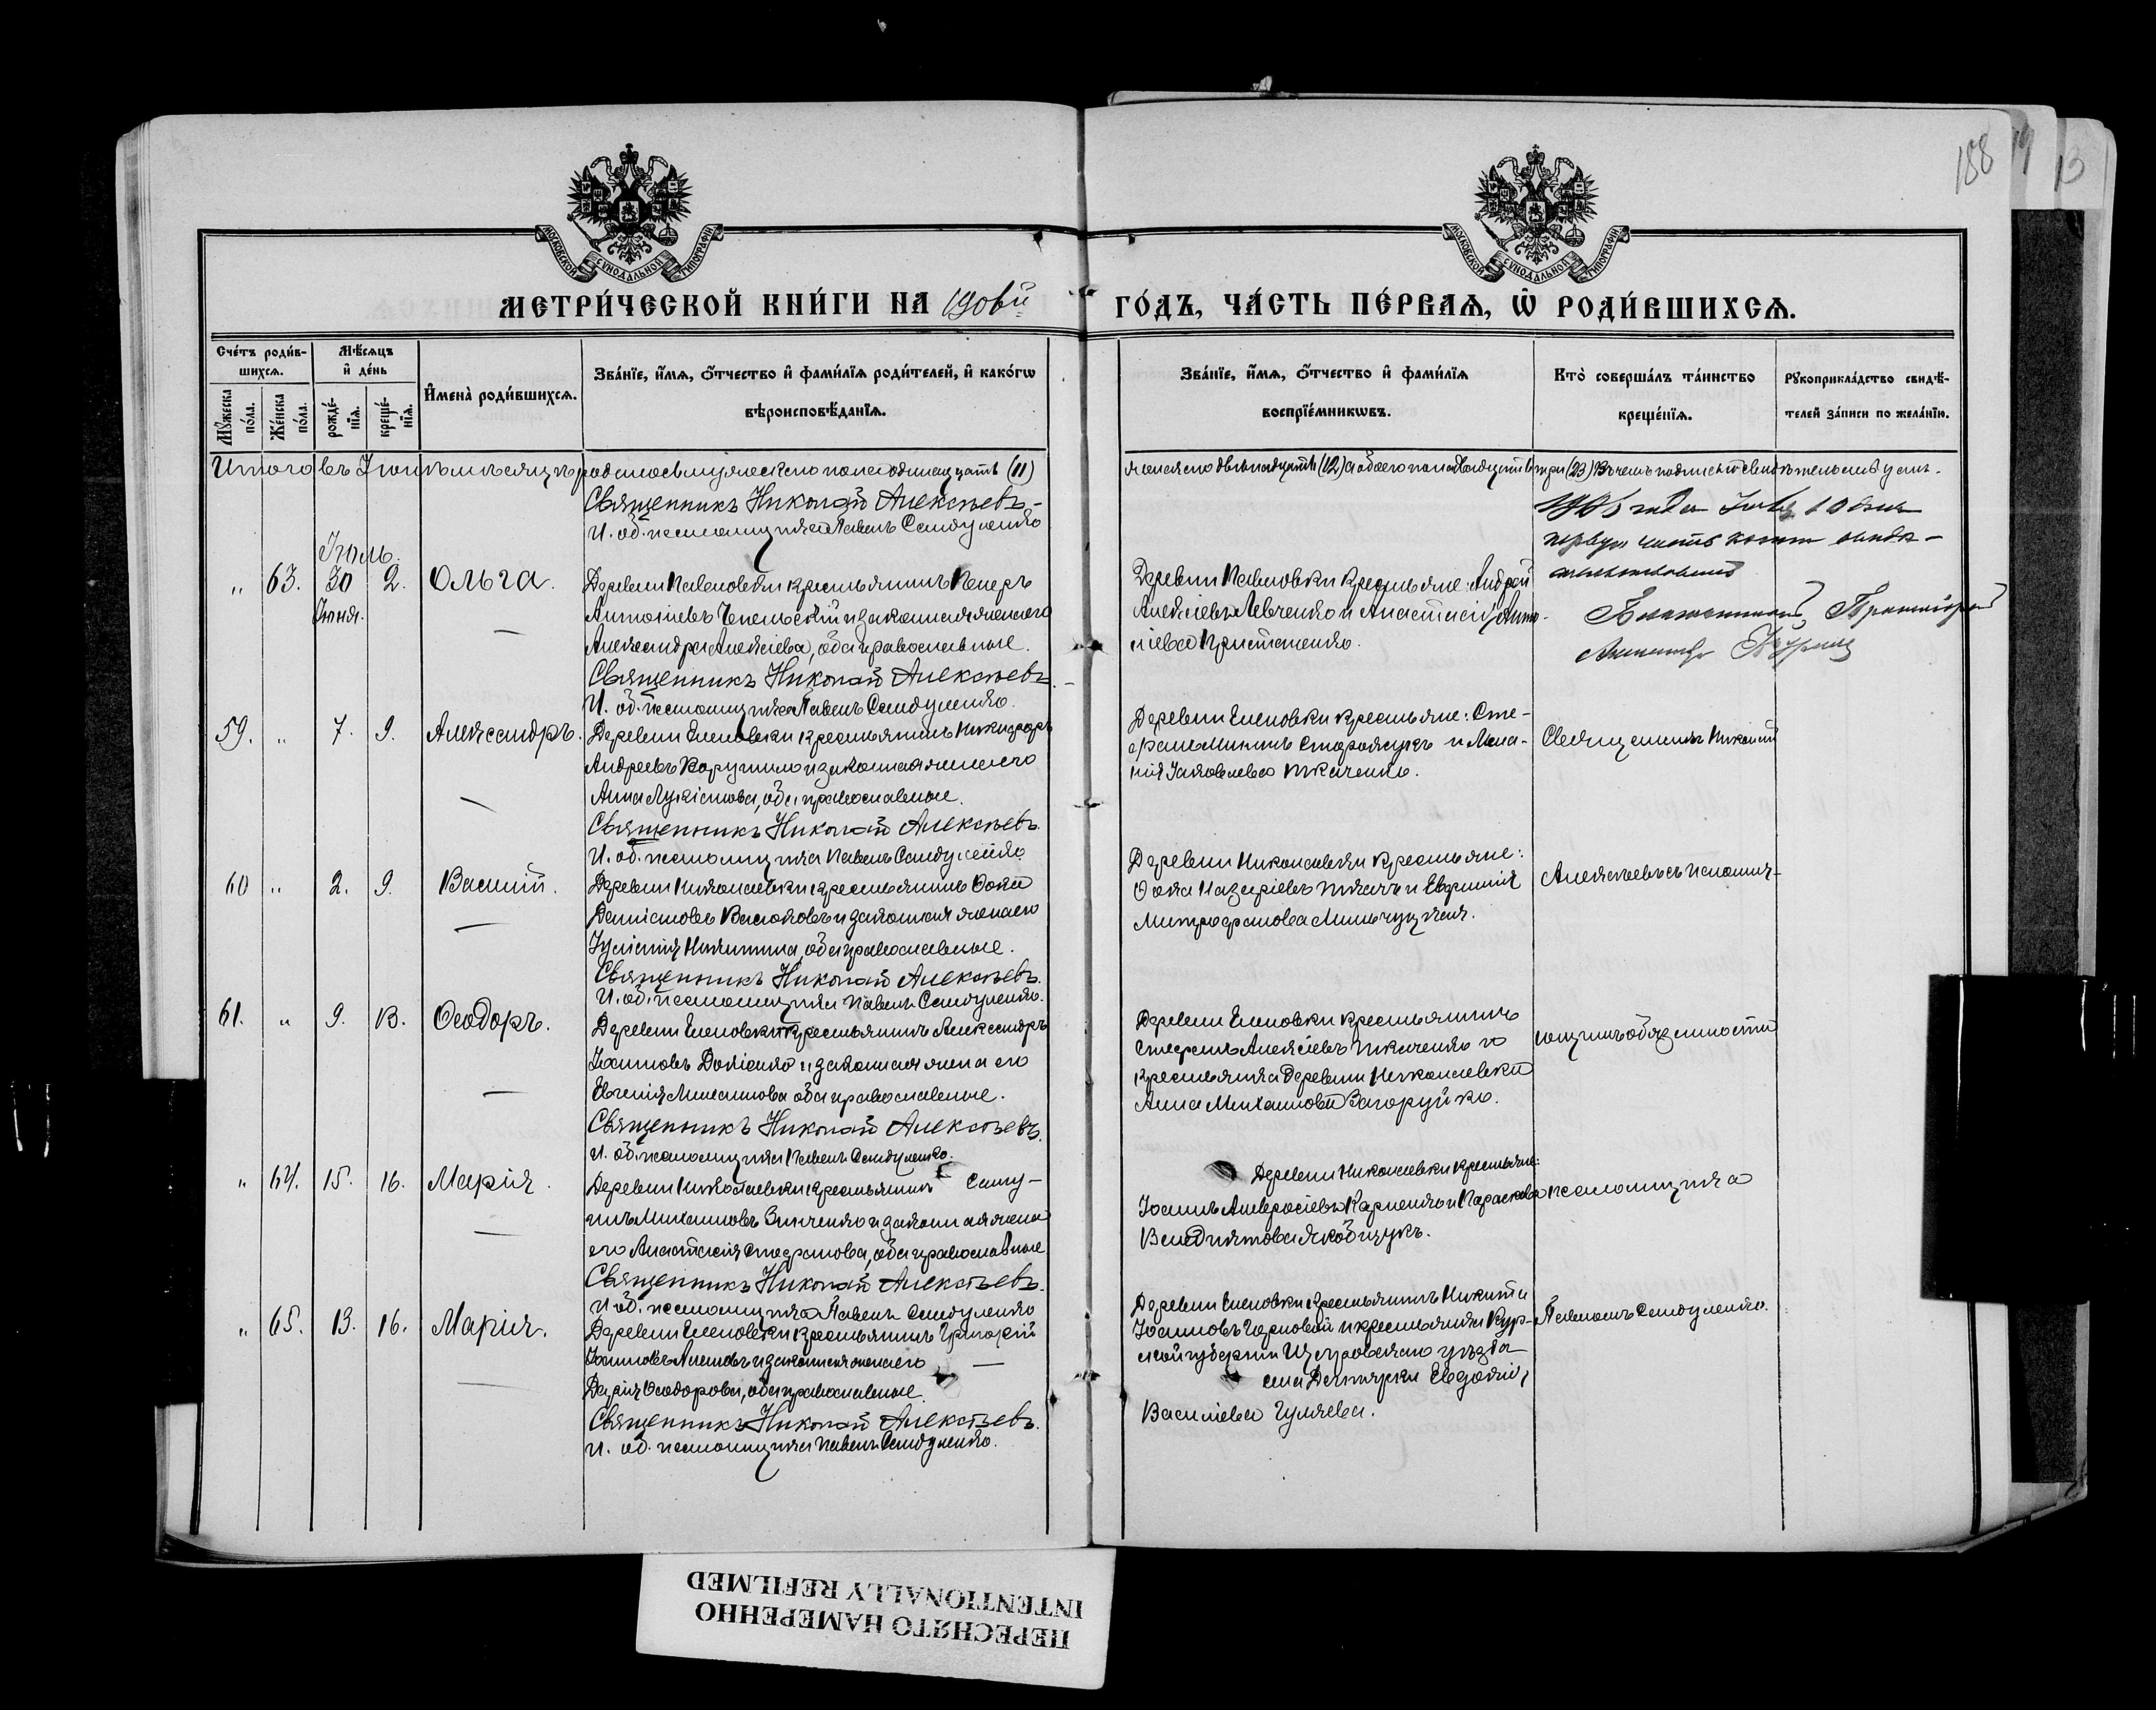 188
МОСКОВСКОЙ СѴНОДАЛЬНОЙ ТИПОГРАФІИ
МОСКОВСКОЙ СѴНОДАЛЬНОЙ ТИПОГРАФІИ
МЕТРИ́ЧЕСКОЙ КНИ́ГИ НА 1906й ГО́ДЪ, ЧА́СТЬ ПЕ́РВАѦ, Ѡ҆ РОДИ́ВШИХСѦ.
Сче́тъ роди́в-
шихсѧ.
Мꙋ́жеска по́ла.
Же́нска по́ла.
Мѣ́сѧцъ
и҆ де́нь
рожде́-
нїѧ.
креще́-
нїѧ.
И҆мена̀ роди́вшихсѧ.
Зва́нїе, и҆́мѧ, ѻ҆́тчество и҆ фами́лїѧ роди́телей, и҆ како́гѡ
вѣроисповѣ́данїѧ.
Зва́нїе, и҆́мѧ, ѻ҆́тчество и҆ фами́лїѧ
воспрїе́мникѡвъ.
Кто̀ соверша́лъ та́инство
креще́нїѧ.
Рꙋкоприкла́дство свидѣ́-
телей за́писи по жела́нїю.
Итого въ Іюнѣ мѣсяцѣ родилось мужескаго пола одинадцать (11) женскаго двѣнадцать (12) а обоего пола двадцать три (23) Въ чемъ подписью свидѣтельствуемъ.
Священникъ Николай Алексѣевъ
И. об. псаломщика Павелъ Сандуленко
1906 года Іюля 10 дня
первую часть
Благочинный, Протоіерей
Іюль.
" 63. 30 Іюня. 2. Ольга.
Деревни Павловки крестьянинъ Петръ
Антоніевъ и законная жена его
Александра Алексіева, оба православные.
Священникъ Николай Алексѣевъ
И. об. псаломщика Павелъ Сандуленко.
Деревни Павловки крестьяне: Андрей
Алексіевъ Левченко и Анастасія Анто-
ніева Пристапенко.
59. " 7. 9. Александръ.
Деревни Еленовки крестьянинъ Никифоръ
Андреевъ и законная жена его
Анна Лукіанова, оба православные.
Священникъ Николай Алексѣевъ.
И. об. псаломщика Павелъ Сандуленко
Деревни Еленовки крестьяне: Сте-
фанъ Мининъ и Мела-
нія Іаковлева Ткаченко.
Священникъ Николай
60 " 2. 9. Василій.
Деревни Николаевки крестьянинъ Ѳока
Даніиловъ и законная жена его
Іуліанія Никитина, оба православные.
Священникъ Николай Алексѣевъ.
И. об. псаломщика Павелъ Сандуленко.
Деревни Николаевки крестьяне:
Ѳока Назаріевъ Ткачъ и Евфимія
Митрофанова
Алексѣевъ съ исполня-
61. " 9. 13. Ѳеодоръ.
Деревни Еленовки крестьянинъ Александръ
Іоанновъ и законная жена его
Евгенія оба православные.
Священникъ Николай Алексѣевъ.
И. об. псаломщика Павелъ Сандуленко.
Деревни Еленовки крестьянинъ
Стефанъ Алексіевъ Ткаченко и
крестьянка деревни Николаевки
Анна Михаилова Загоруйко.
ющимъ обязанности
" 64. 15. 16. Марія.
Деревни Николаевки крестьянинъ Саму-
илъ Михаиловъ Зинченко и законная жена
его Анастасія Стефанова, оба православные
Священникъ Николай Алексѣевъ.
И. об. псаломщика Павелъ Сандуленко
Деревни Николаевки крестьяне:
Іоаннъ Амвросіевъ и Параскева
Венедиктова
псаломщика
" 65. 13. 16. Марія.
Деревни Еленовки крестьянинъ Григорій
Іоанновъ и законная жена его
Дарія Ѳеодорова, оба православные.
Священникъ Николай Алексѣевъ.
И. об. псаломщика Павелъ Сандуленко.
Деревни Еленовки крестьянинъ Никита
Іоанновъ и крестьянка Кур-
ской губерніи Щигровскаго уѣзда
села Евдокія
Василіева Гуляева.
Павломъ Сандуленко.
ПЕРЕСНЯТО НАМЕРЕННО
INTENTIONALLY REFILMED